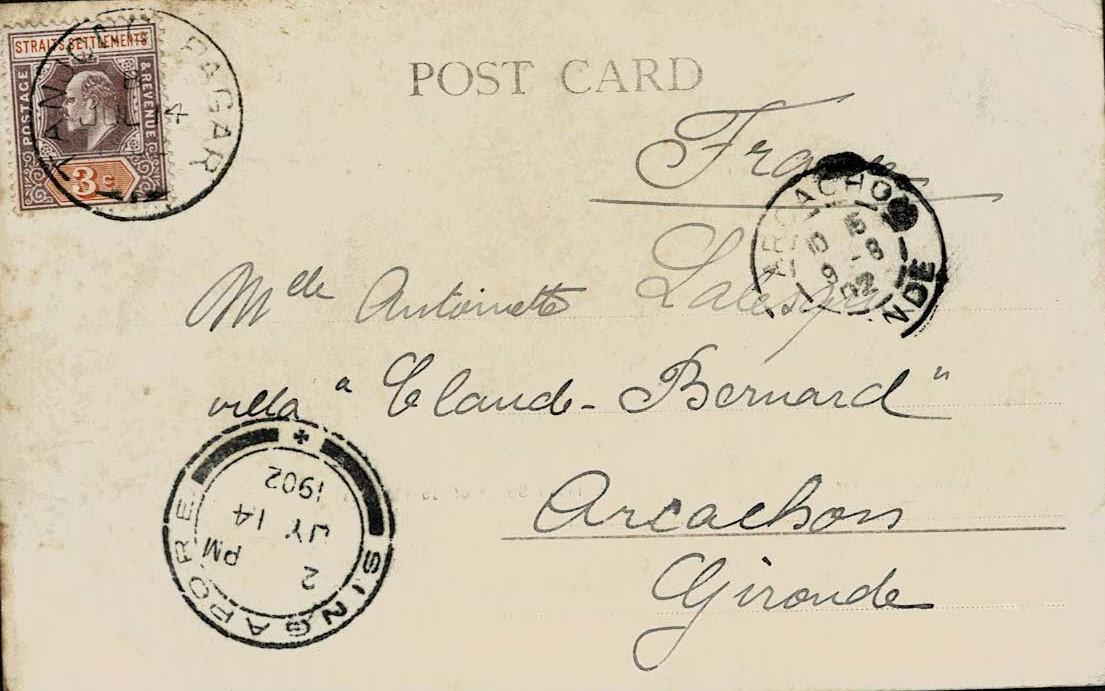 STRAITS SETTLEMENTS
POSTAGE
& REVENUE
3c
TANJONG PAGAR
JUL 14
POST CARD
France
ARCACHON
10 15
9 -8
02
NDE
Melle Antoinette Lalesque
villa "Claude-Bernard"
Arcachon
Gironde
SINGAPORE
2 PM
JY 14
1902